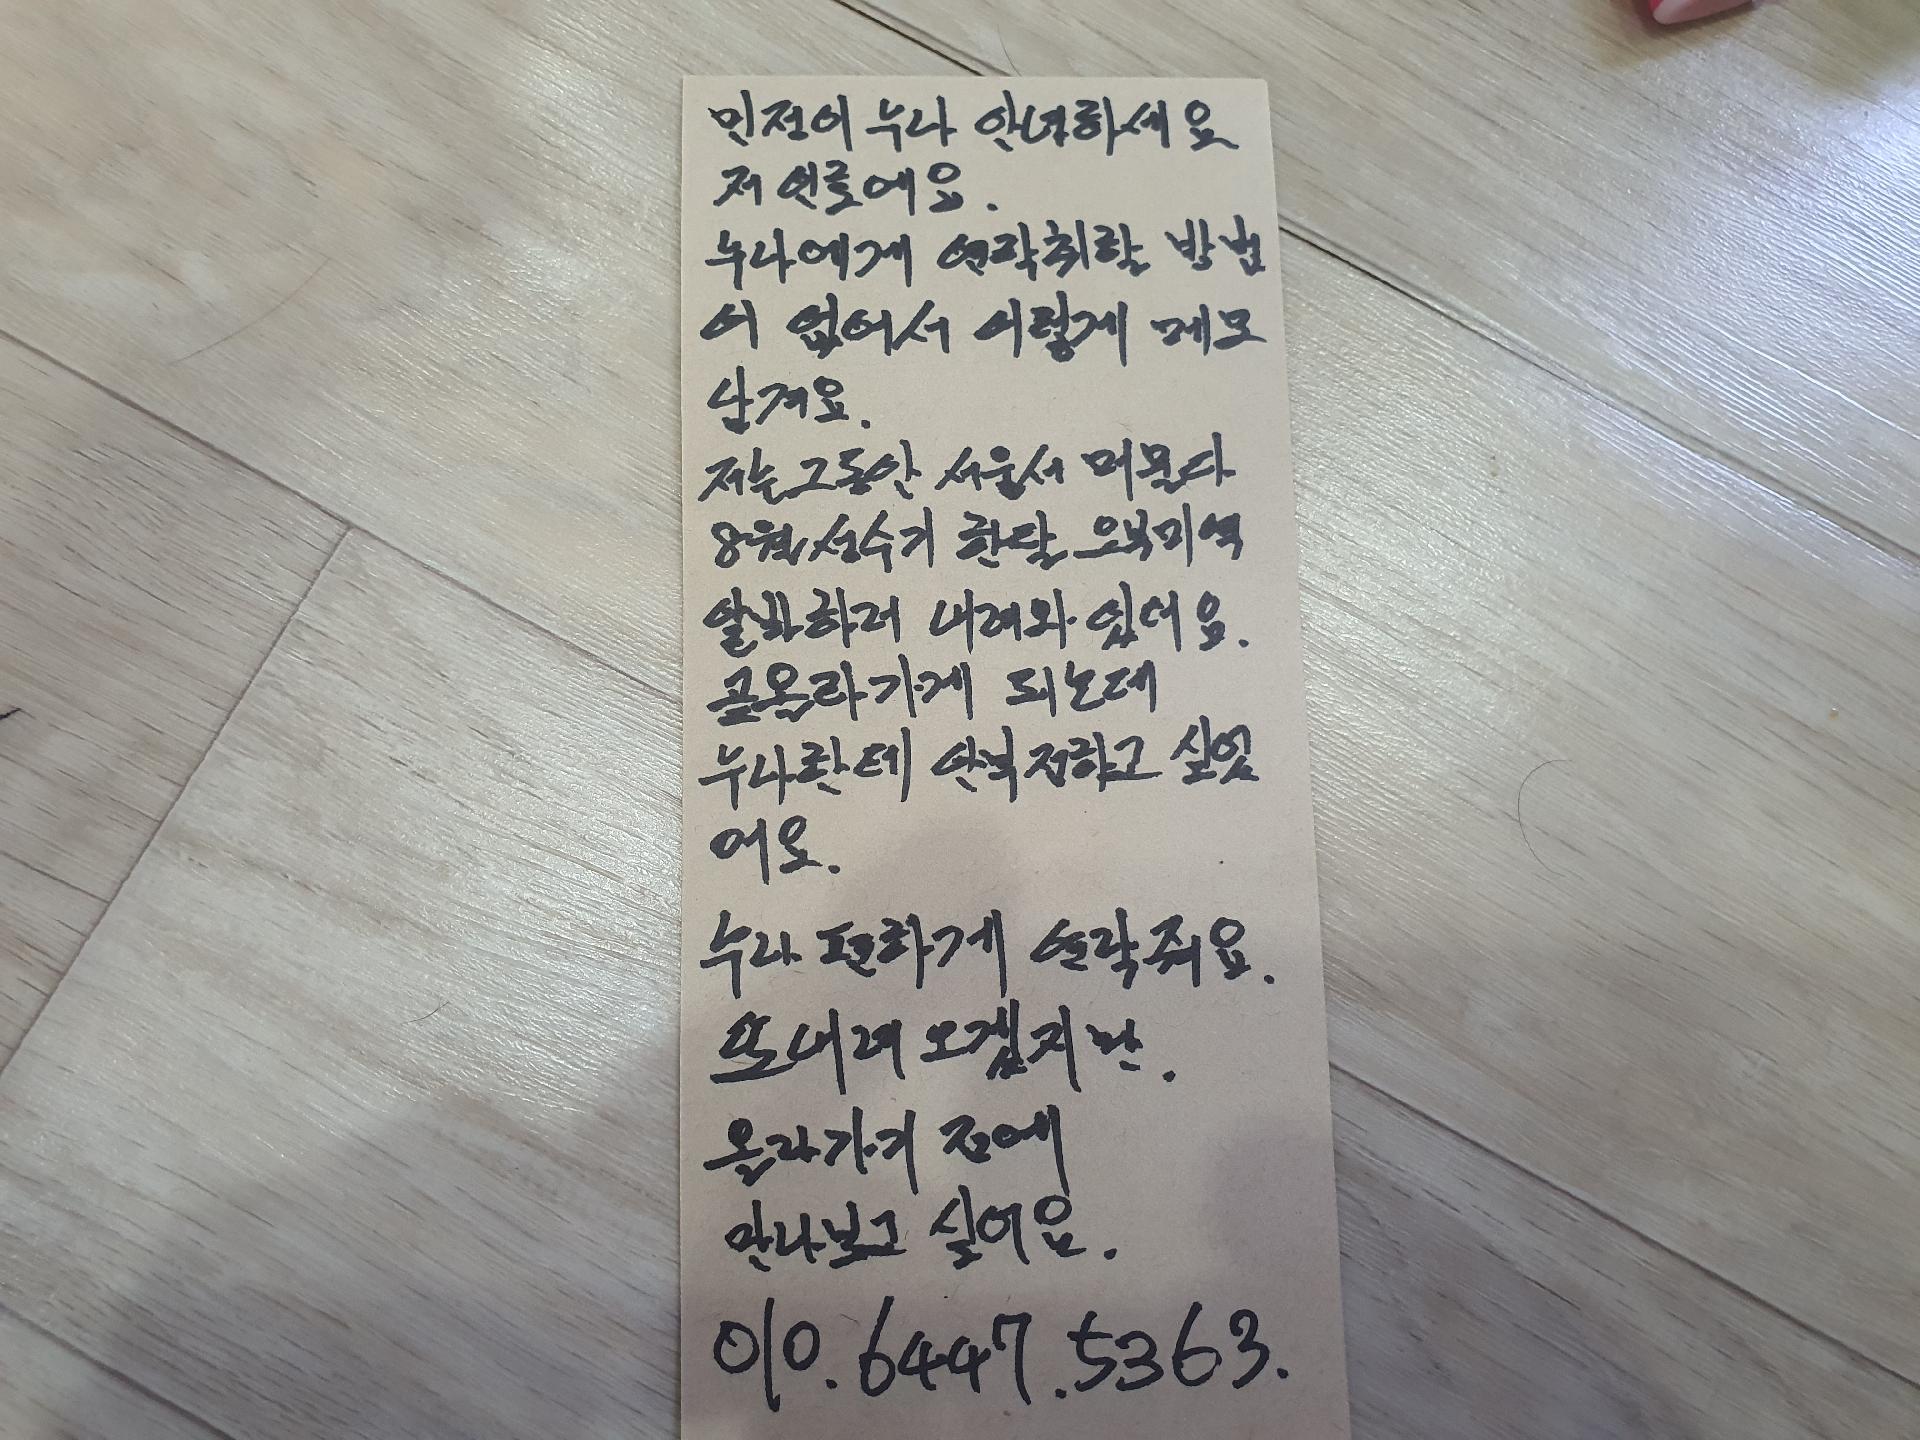 민정이 누나 안녕하세요
저 인호에요.
누나에게 연락취할 방법
이 없어서 이렇게 메모
남겨요.
저는 그동안 서울서 머물다
8월 성수기 한달
알바하러 내려와 있어요.
곧 올라가게 되는데
누나한테 안부 전하고 싶었
어요.
누나 편하게 연락줘요.
또 내려오겠지만.
올라가기 전에
만나보고 싶어요.
010.6447.5363.